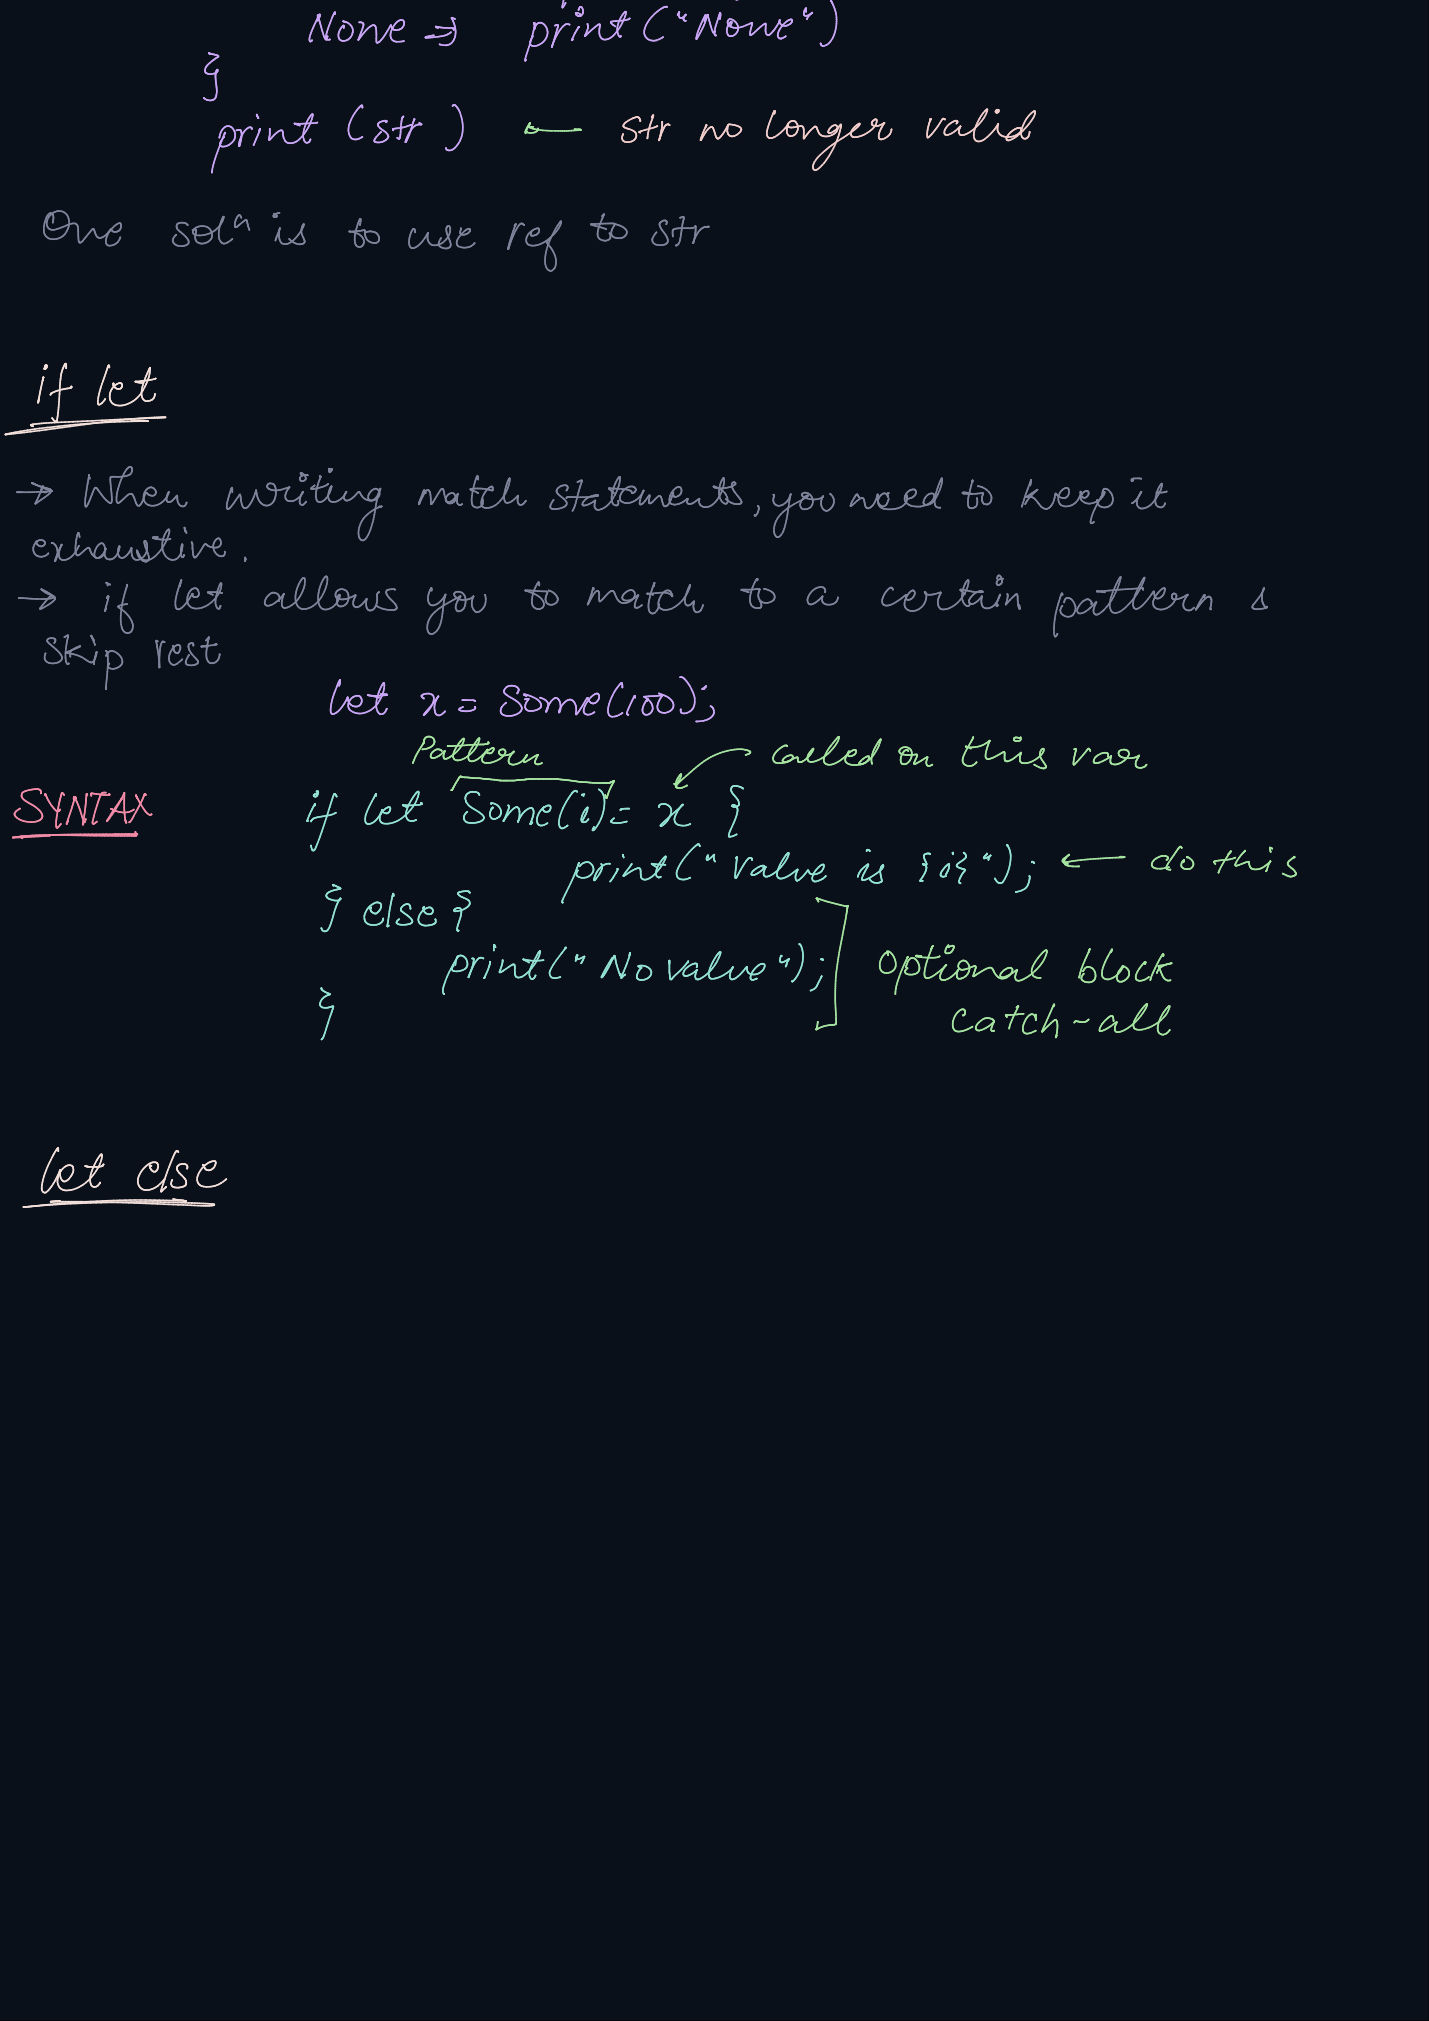 None => print("None")
}
print (str) ← str no longer valid
One solⁿ is to use ref to str
if let
→ When writing match statements, you need to keep it
exhaustive.
→ if let allows you to match to a certain pattern &
skip rest
let x = Some(100);
Pattern called on this var
SYNTAX if let Some(i) = x {
print("value is {i}"); ← do this
} else {
print("No value"); optional block
} catch-all
let else